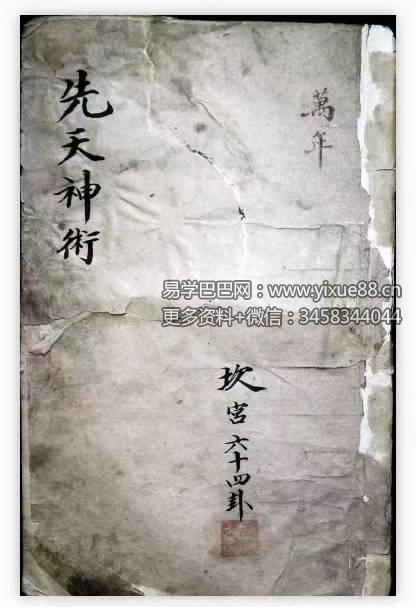 萬年
先天神術
易学巴巴网：www.yixue88.cn
更多资料+微信：3458344044
坎宮六十四卦